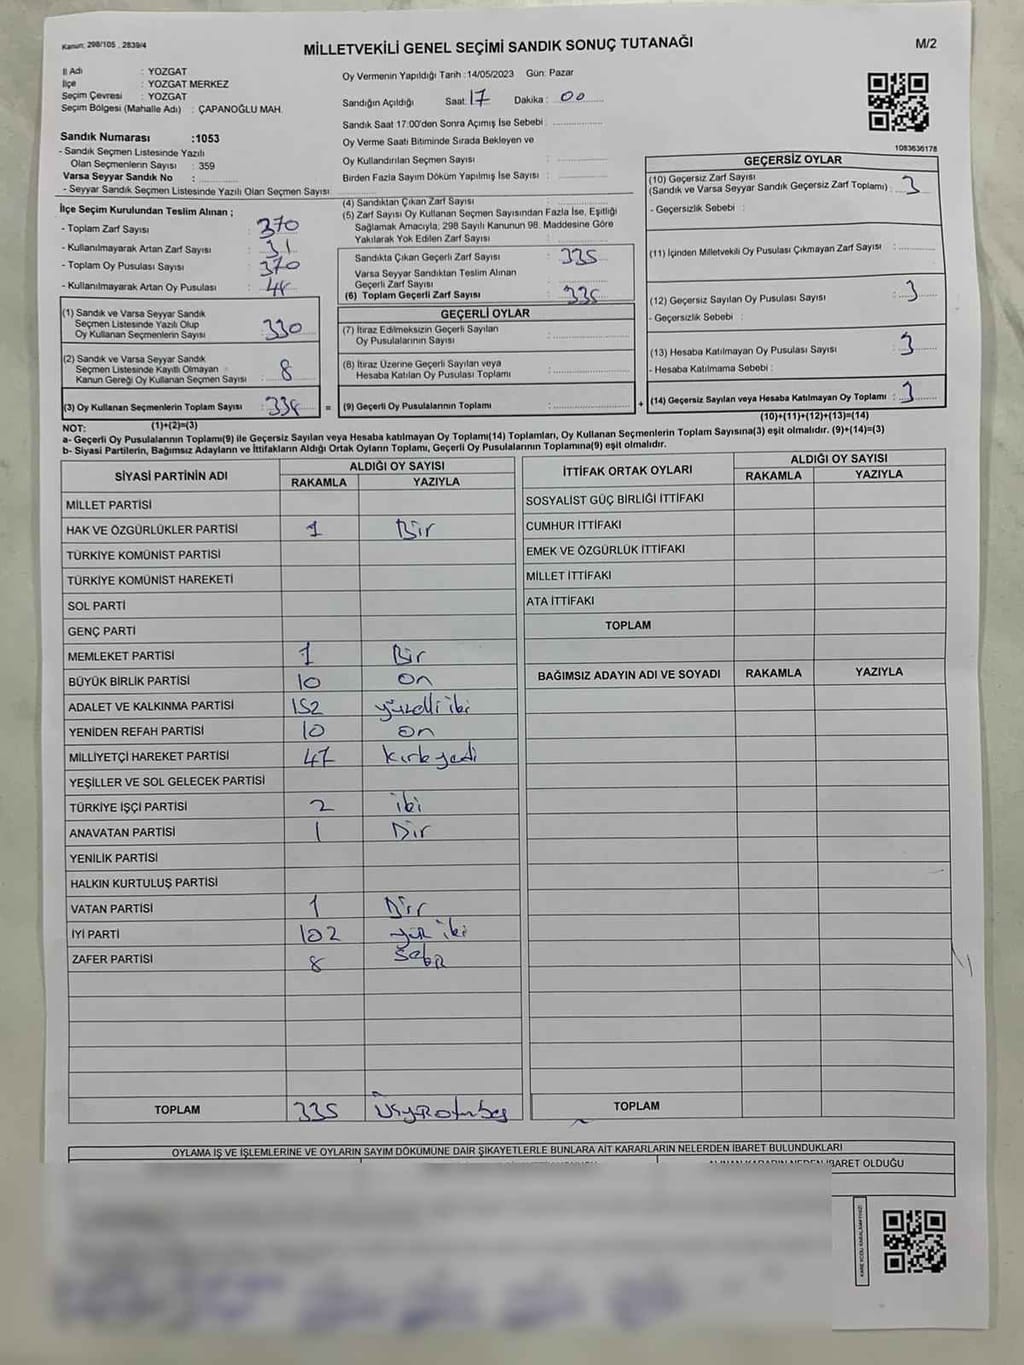 Kanun: 298/105 . 2839/4
MİLLETVEKİLİ GENEL SEÇİMİ SANDIK SONUÇ TUTANAĞI
M/2
İl Adı : YOZGAT
İlçe : YOZGAT MERKEZ
Seçim Çevresi : YOZGAT
Seçim Bölgesi (Mahalle Adı) : ÇAPANOĞLU MAH.
Sandık Numarası :1053
- Sandık Seçmen Listesinde Yazılı
Olan Seçmenlerin Sayısı : 359
Varsa Seyyar Sandık No :
- Seyyar Sandık Seçmen Listesinde Yazılı Olan Seçmen Sayısı:
Oy Vermenin Yapıldığı Tarih :14/05/2023 Gün: Pazar
Sandığın Açıldığı Saat: 17 Dakika : 00
Sandık Saat 17:00'den Sonra Açımış İse Sebebi :
Oy Verme Saati Bitiminde Sırada Bekleyen ve
Oy Kullandırılan Seçmen Sayısı :
Birden Fazla Sayım Döküm Yapılmış İse Sayısı :
1083636178
İlçe Seçim Kurulundan Teslim Alınan ;
- Toplam Zarf Sayısı : 370
- Kullanılmayarak Artan Zarf Sayısı : 31
- Toplam Oy Pusulası Sayısı : 370
- Kullanılmayarak Artan Oy Pusulası :
(1) Sandık ve Varsa Seyyar Sandık
Seçmen Listesinde Yazılı Olup
Oy Kullanan Seçmenlerin Sayısı : 330
(2) Sandık ve Varsa Seyyar Sandık
Seçmen Listesinde Kayıtlı Olmayan
Kanun Gereği Oy Kullanan Seçmen Sayısı : 8
(3) Oy Kullanan Seçmenlerin Toplam Sayısı : 338
(1)+(2)=(3)
(4) Sandıktan Çıkan Zarf Sayısı :
(5) Zarf Sayısı Oy Kullanan Seçmen Sayısından Fazla İse, Eşitliği
Sağlamak Amacıyla, 298 Sayılı Kanunun 98. Maddesine Göre
Yakılarak Yok Edilen Zarf Sayısı :
Sandıkta Çıkan Geçerli Zarf Sayısı : 335
Varsa Seyyar Sandıktan Teslim Alınan
Geçerli Zarf Sayısı :
(6) Toplam Geçerli Zarf Sayısı : 335
GEÇERLİ OYLAR
(7) İtiraz Edilmeksizin Geçerli Sayılan
Oy Pusulalarının Sayısı :
(8) İtiraz Üzerine Geçerli Sayılan veya
Hesaba Katılan Oy Pusulası Toplamı :
= (9) Geçerli Oy Pusulalarının Toplamı :
GEÇERSİZ OYLAR
(10) Geçersiz Zarf Sayısı
(Sandık ve Varsa Seyyar Sandık Geçersiz Zarf Toplamı) : 3
- Geçersizlik Sebebi :
(11) İçinden Milletvekili Oy Pusulası Çıkmayan Zarf Sayısı :
(12) Geçersiz Sayılan Oy Pusulası Sayısı : 3
- Geçersizlik Sebebi :
(13) Hesaba Katılmayan Oy Pusulası Sayısı : 3
- Hesaba Katılmama Sebebi :
+ (14) Geçersiz Sayılan veya Hesaba Katılmayan Oy Toplamı : 3
(10)+(11)+(12)+(13)=(14)
NOT:
a- Geçerli Oy Pusulalarının Toplamı(9) ile Geçersiz Sayılan veya Hesaba katılmayan Oy Toplamı(14) Toplamları, Oy Kullanan Seçmenlerin Toplam Sayısına(3) eşit olmalıdır. (9)+(14)=(3)
b- Siyasi Partilerin, Bağımsız Adayların ve İttifakların Aldığı Ortak Oyların Toplamı, Geçerli Oy Pusulalarının Toplamına(9) eşit olmalıdır.
SİYASİ PARTİNİN ADI ALDIĞI OY SAYISI
RAKAMLA YAZIYLA
MİLLET PARTİSİ
HAK VE ÖZGÜRLÜKLER PARTİSİ 1 Bir
TÜRKİYE KOMÜNİST PARTİSİ
TÜRKİYE KOMÜNİST HAREKETİ
SOL PARTİ
GENÇ PARTİ
MEMLEKET PARTİSİ 1 Bir
BÜYÜK BİRLİK PARTİSİ 10 on
ADALET VE KALKINMA PARTİSİ 152 yüzelli iki
YENİDEN REFAH PARTİSİ 10 on
MİLLİYETÇİ HAREKET PARTİSİ 47 kırkyedi
YEŞİLLER VE SOL GELECEK PARTİSİ
TÜRKİYE İŞÇİ PARTİSİ 2 iki
ANAVATAN PARTİSİ 1 Bir
YENİLİK PARTİSİ
HALKIN KURTULUŞ PARTİSİ
VATAN PARTİSİ 1 Bir
İYİ PARTİ 102 yüz iki
ZAFER PARTİSİ 8 Sekiz
TOPLAM 335 üçyüzotuzbeş
İTTİFAK ORTAK OYLARI ALDIĞI OY SAYISI
RAKAMLA YAZIYLA
SOSYALİST GÜÇ BİRLİĞİ İTTİFAKI
CUMHUR İTTİFAKI
EMEK VE ÖZGÜRLÜK İTTİFAKI
MİLLET İTTİFAKI
ATA İTTİFAKI
TOPLAM
BAĞIMSIZ ADAYIN ADI VE SOYADI RAKAMLA YAZIYLA
TOPLAM
OYLAMA İŞ VE İŞLEMLERİNE VE OYLARIN SAYIM DÖKÜMÜNE DAİR ŞİKAYETLERLE BUNLARA AİT KARARLARIN NELERDEN İBARET BULUNDUKLARI
İBARET OLDUĞU